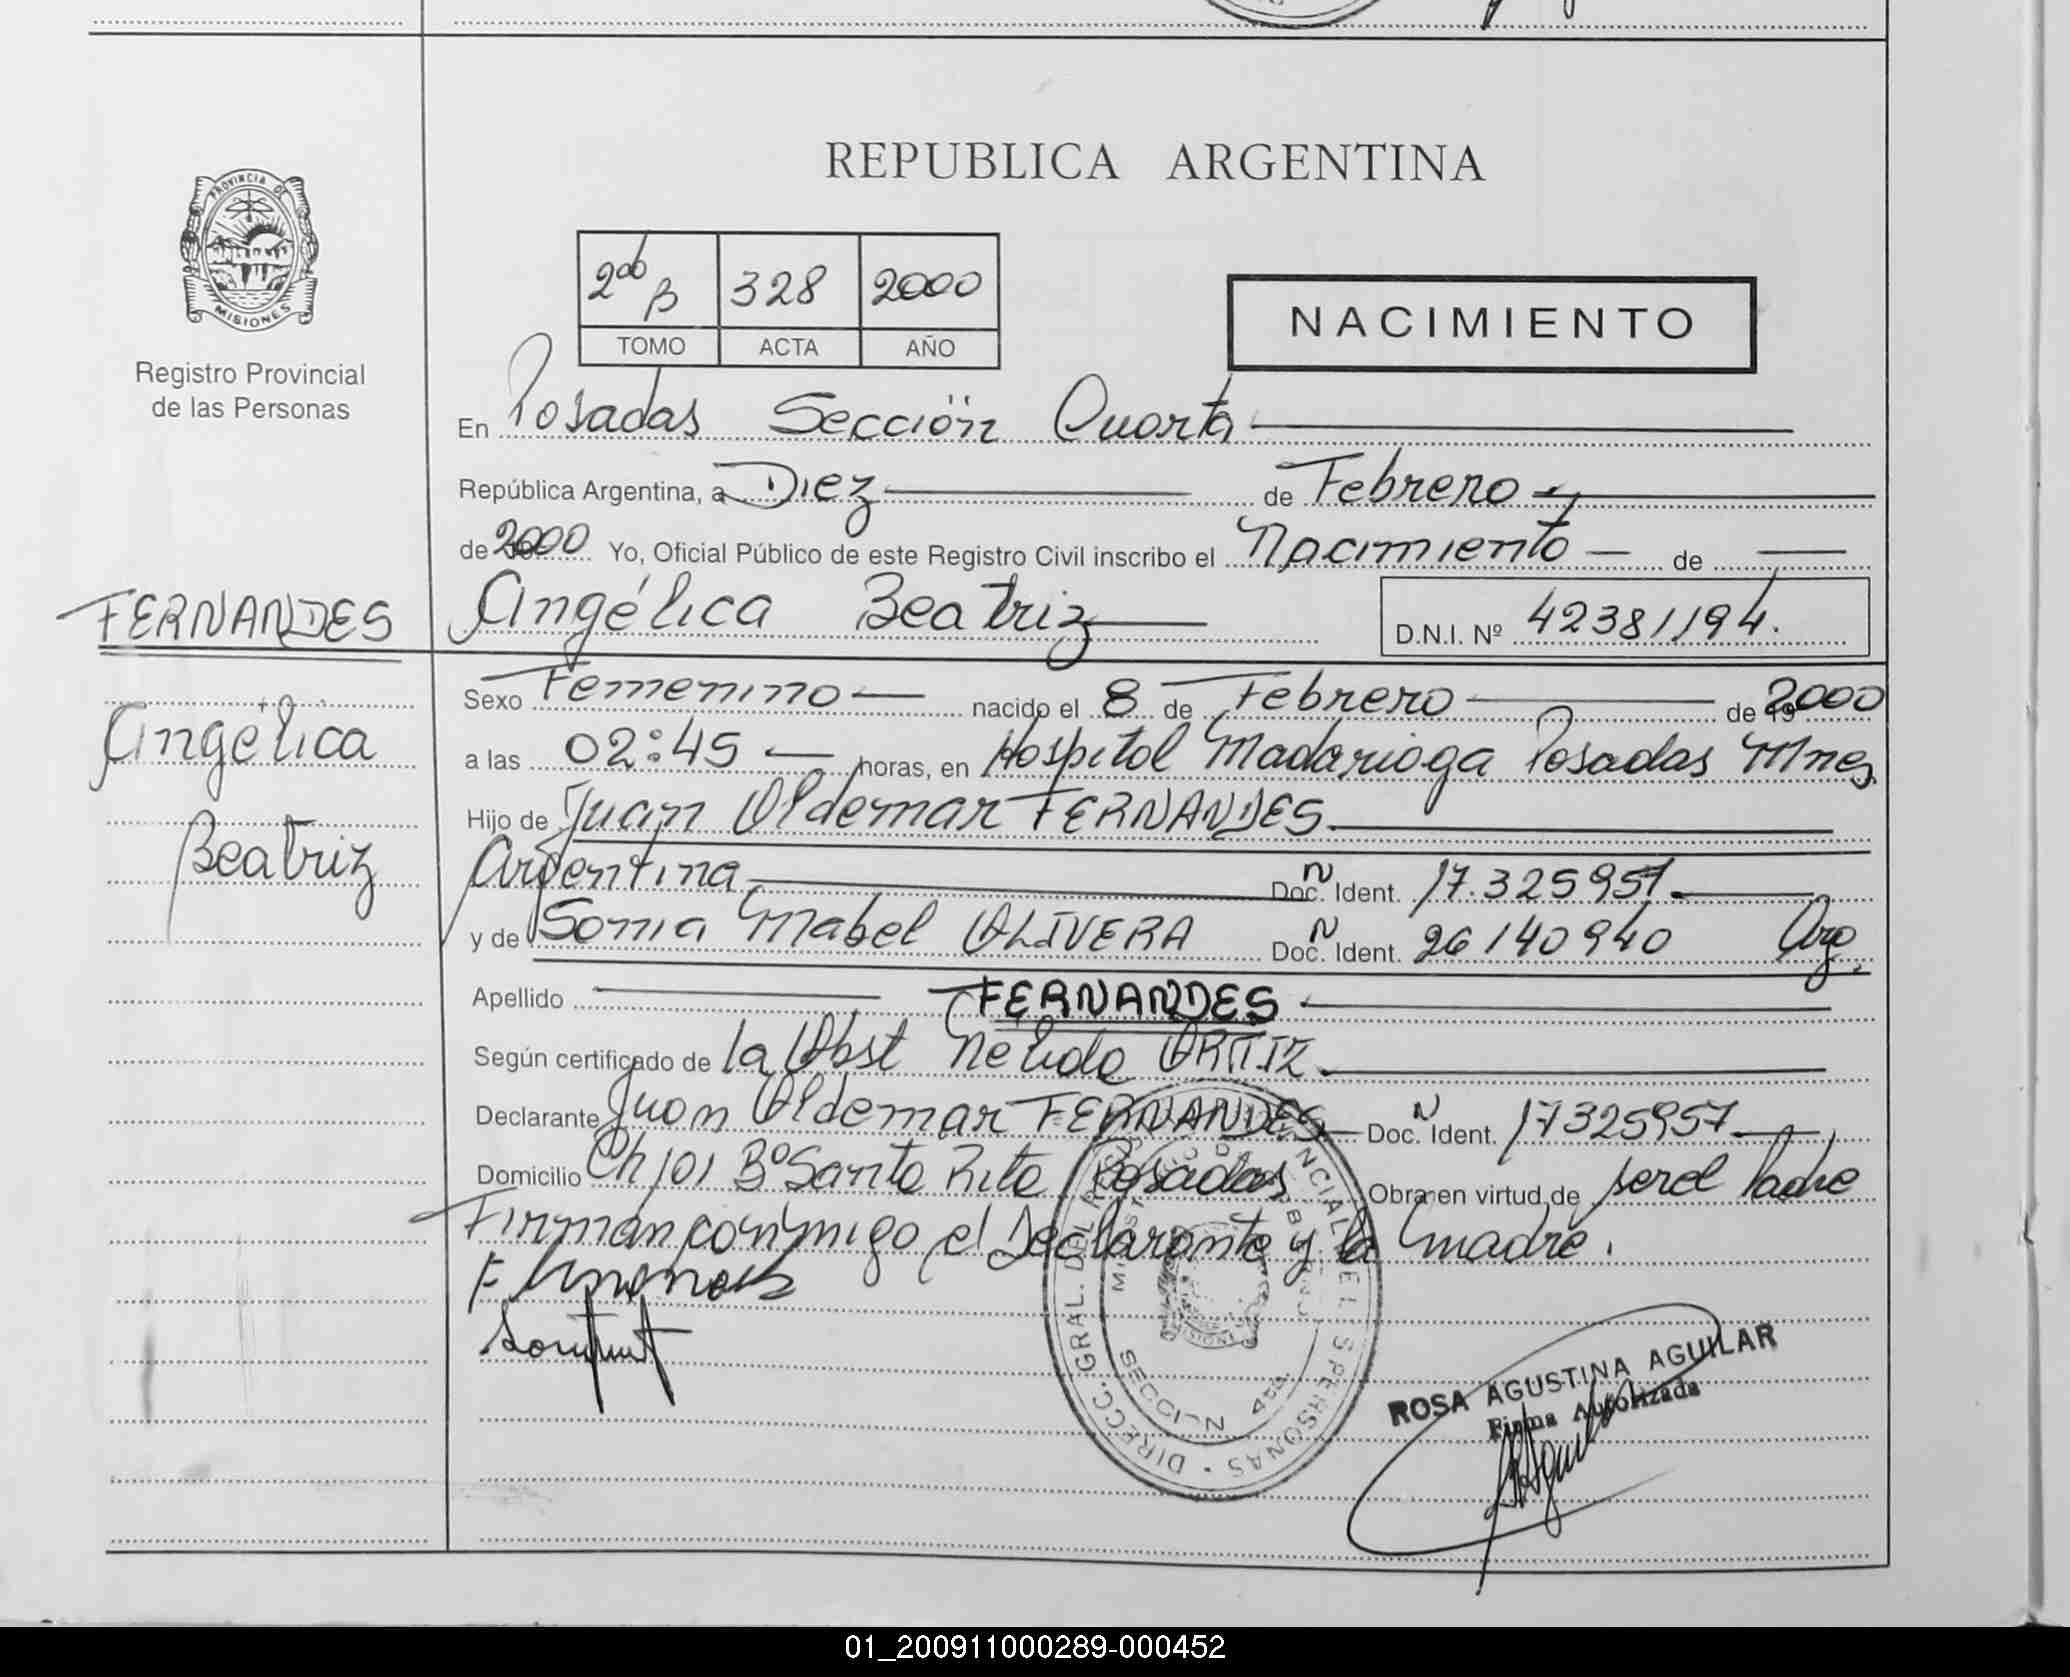 REPUBLICA ARGENTINA
PROVINCIA DE
MISIONES
Registro Provincial
de las Personas
2do B 328 2000
TOMO ACTA AÑO
NACIMIENTO
En Posadas Sección Cuarta
República Argentina, a Diez de Febrero
de 2000 Yo, Oficial Público de este Registro Civil inscribo el Nacimiento de
FERNANDES
Angélica
Beatriz
Angélica Beatriz D.N.I. Nº 42381194.
Sexo Femenino nacido el 8 de Febrero de 2000
a las 02:45 horas, en Hospital Madariaga Posadas Mnes
Hijo de Juan Oldemar FERNANDES
Argentina Doc. Ident. 17.325957
y de Sonia Mabel OLIVERA Doc. Ident. 26140940 Arg.
Apellido FERNANDES
Según certificado de la Obst Nélida ORTIZ
Declarante Juan Oldemar FERNANDES Doc. Ident. 17325957
Domicilio Ch 101 Bº Santa Rita Posadas Obra en virtud de ser el Padre
Firman conmigo el Declarante y la madre.
DIRECC. GRAL. DEL
PROVINCIAL DE LAS PERSONAS
SECCION 4ta
ROSA AGUSTINA AGUILAR
Firma Autorizada
01_200911000289-000452